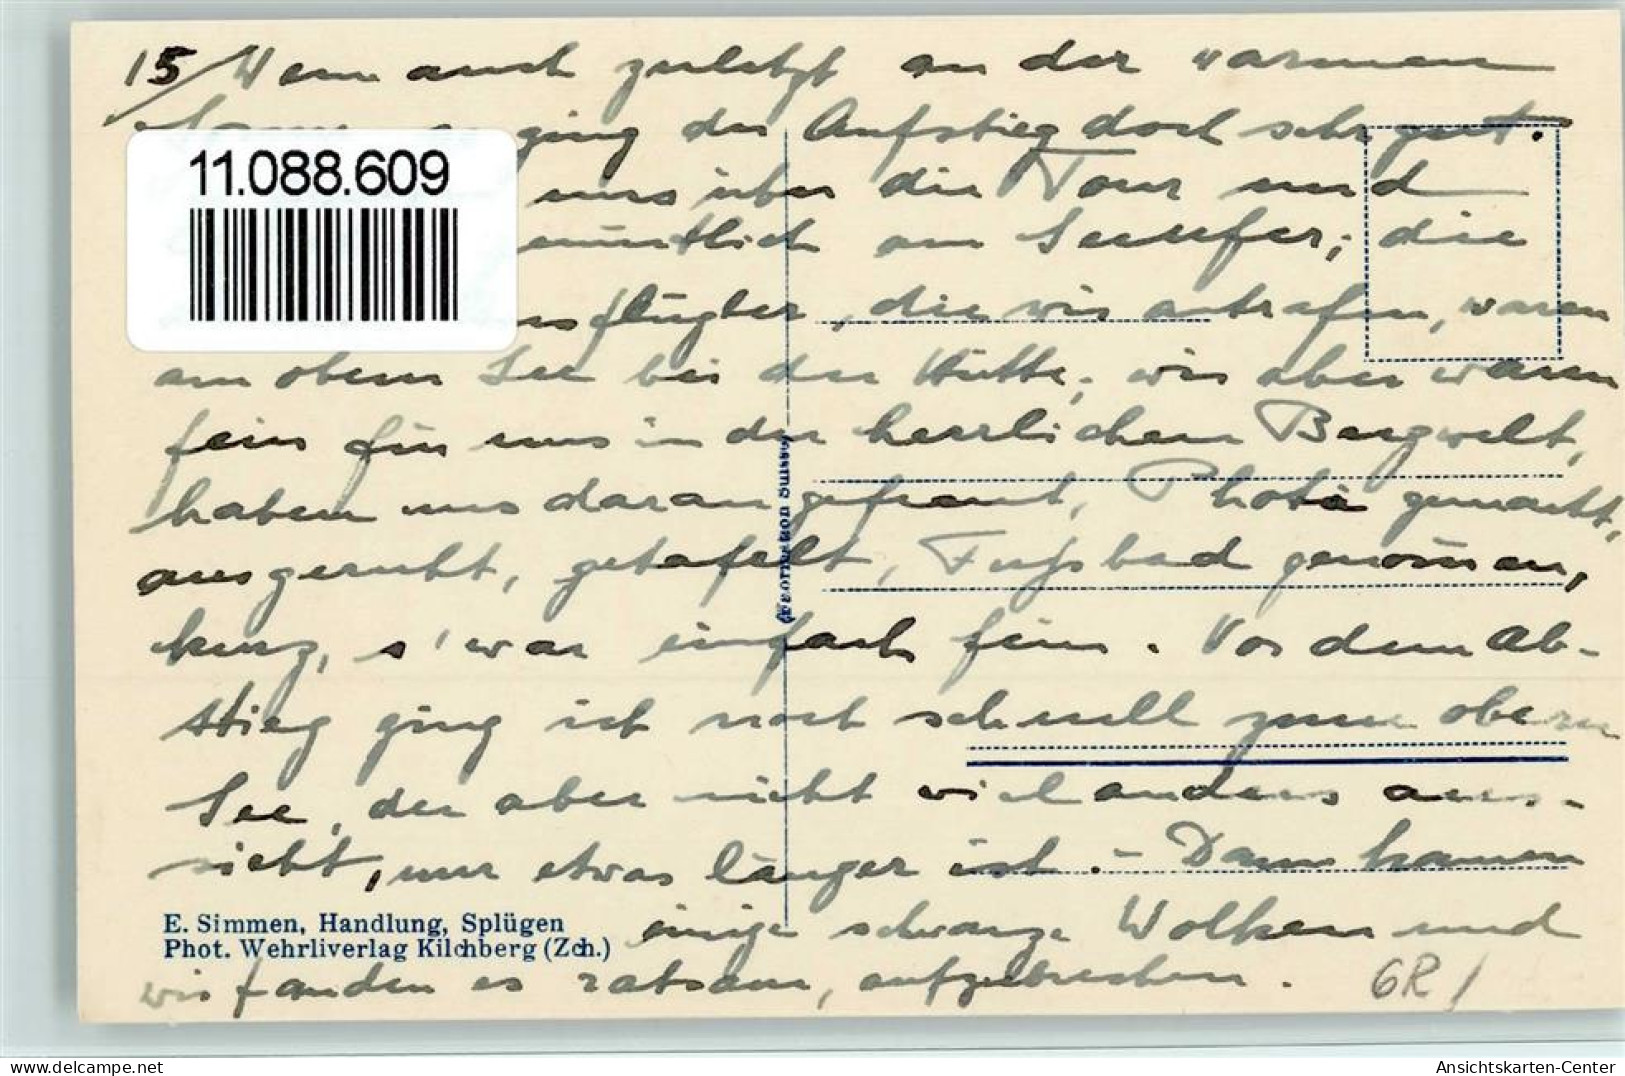 15/ Wenn auch zuletzt an der warmen
ging der Aufstieg doch sehr gut.
11.088.609
uns über die Tour und
am Seeufer; die
die wir antrafen, waren
am obern See bei der Hütte; wir aber waren
fein für uns in der herrlichen Bergwelt,
haben uns daran gefreut, Photo gemacht,
ausgeruht, getafelt, Fussbad genom̄en,
kurz, s'war einfach fein. Vor dem Ab-
stieg ging ich noch schnell zum obern
See, der aber nicht viel anders aus-
sieht, nur etwas länger ist. - Dann kamen
E. Simmen, Handlung, Splügen
einige schwarze Wolken und
Phot. Wehrliverlag Kilchberg (Zch.)
wir fanden es ratsam, aufzubrechen.
GR /
Ansichtskarten-Center